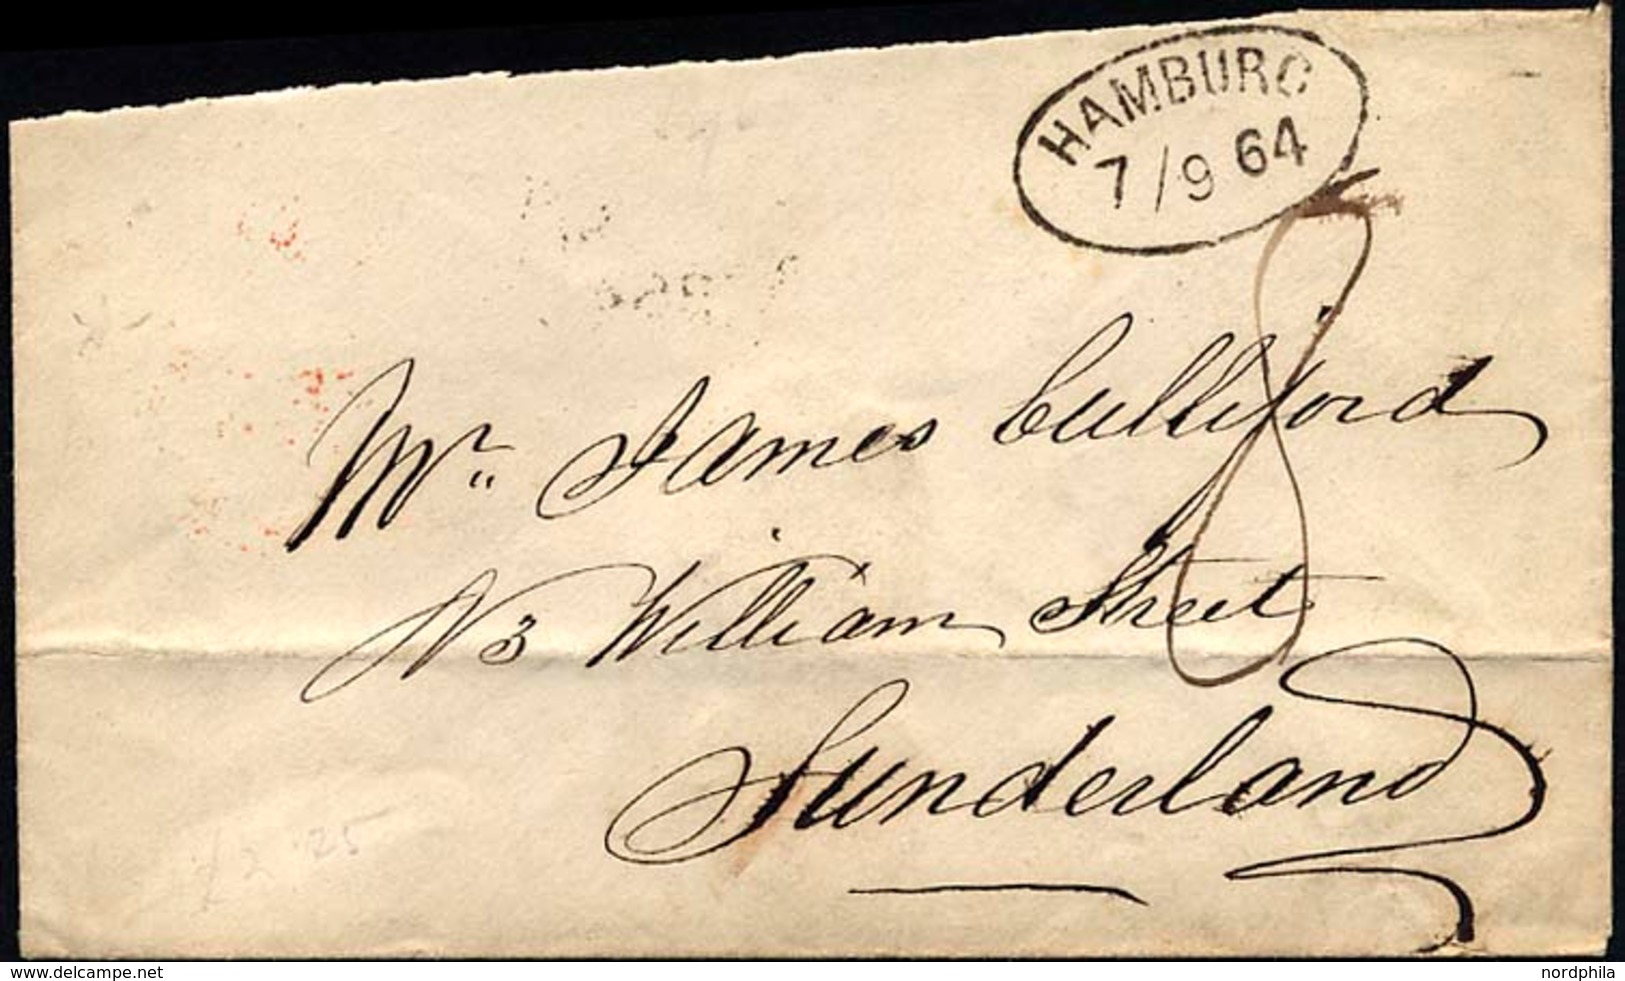 HAMBURG
7/9 64
8
Mr. James Culliford
N 3 William Street
Sunderland
£2.25
www.delcampe.net
nordphila